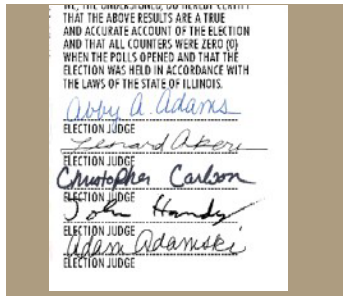 WE, THE UNDERSIGNED, DO HEREBY CERTIFY
THAT THE ABOVE RESULTS ARE A TRUE
AND ACCURATE ACCOUNT OF THE ELECTION
AND THAT ALL COUNTERS WERE ZERO (0)
WHEN THE POLLS OPENED AND THAT THE
ELECTION WAS HELD IN ACCORDANCE WITH
THE LAWS OF THE STATE OF ILLINOIS.
Abby A. Adams
ELECTION JUDGE
Leonard Akers
ELECTION JUDGE
Christopher Carlson
ELECTION JUDGE
John Handy
ELECTION JUDGE
Adam Adamski
ELECTION JUDGE